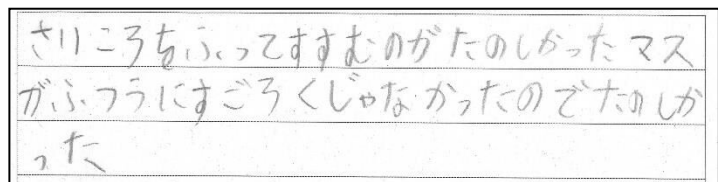 さいころをふってすすむのがたのしかったマス
がふつうにすごろくじゃなかったのでたのしか
った